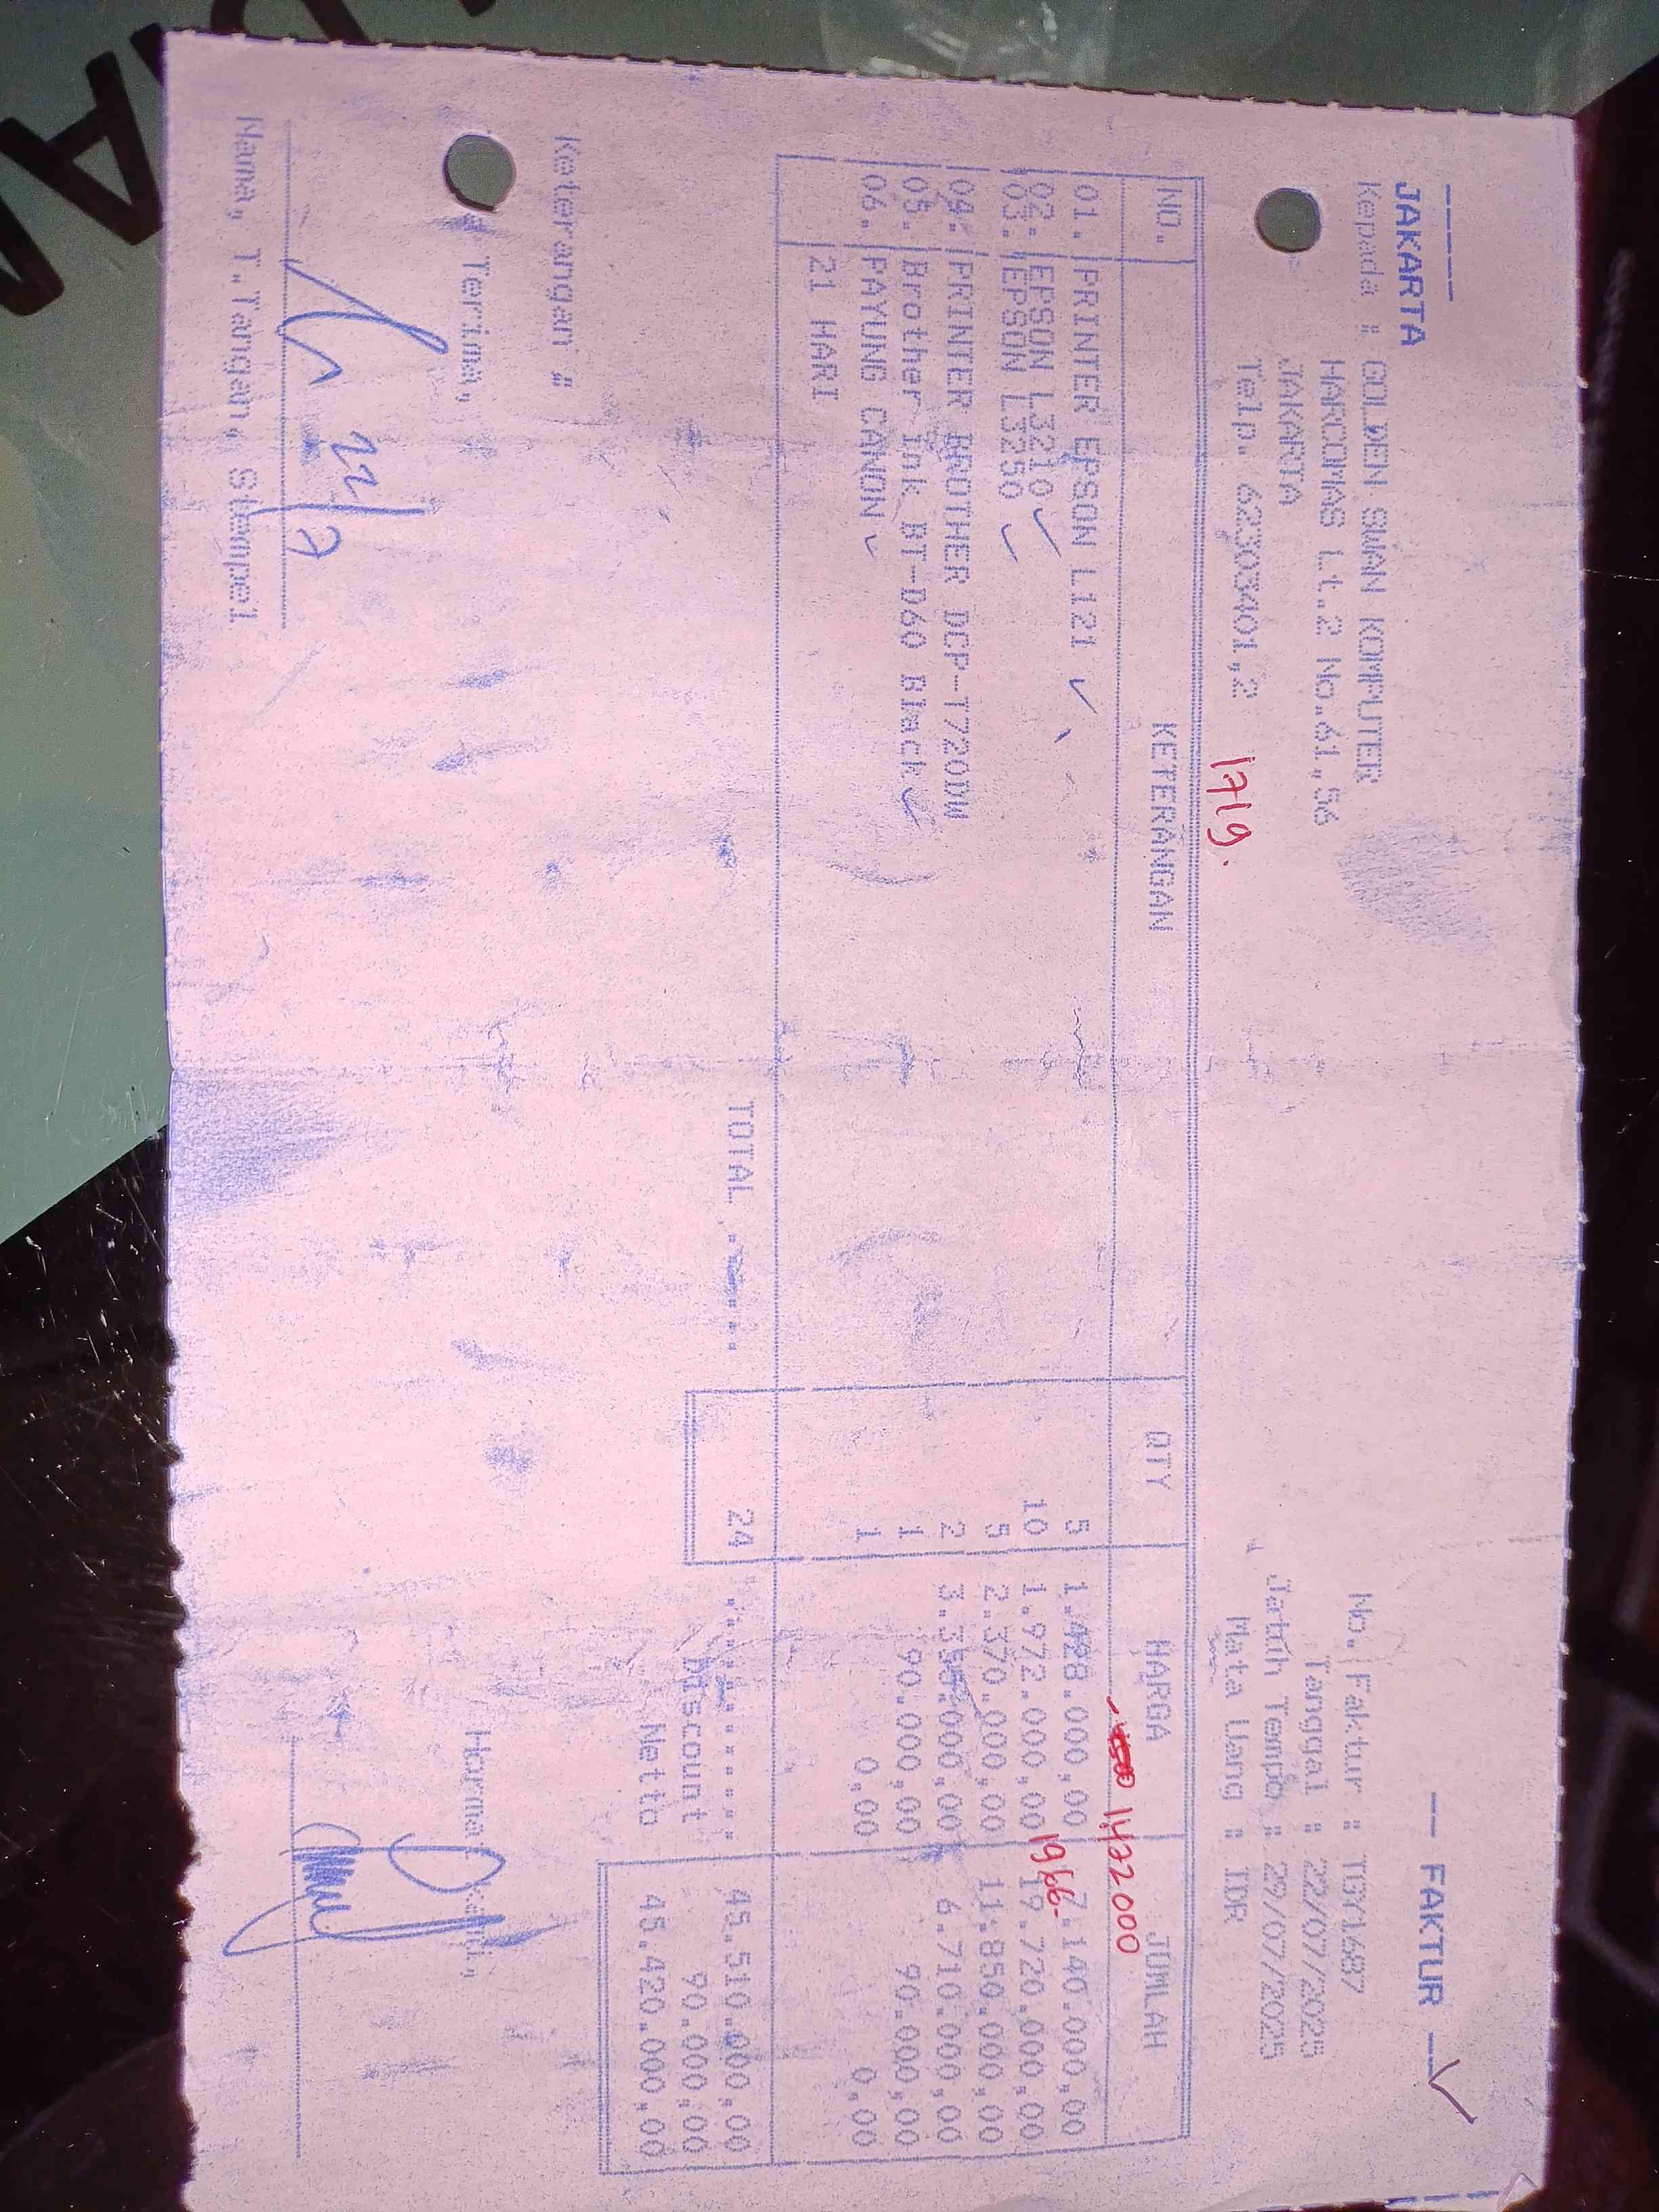 JAKARTA
-- FAKTUR --
Kepada : GOLDEN SWAN KOMPUTER
No. Faktur : TGY1687
HARCOMAS Lt.2 No.61,56
Tanggal : 22/07/2025
JAKARTA
Jatuh Tempo : 29/07/2025
Telp. 62303401,2
1719.
Mata Uang : IDR
NO. KETERANGAN QTY HARGA JUMLAH
1.422000
01. PRINTER EPSON L121 5 1.428.000,00 7.140.000,00
1966-
02. EPSON L3210 10 1.972.000,00 19.720.000,00
03. EPSON L3250 5 2.370.000,00 11.850.000,00
04. PRINTER BROTHER DCP-T720DW 2 3.355.000,00 6.710.000,00
05. Brother Ink BT-D60 Black 1 90.000,00 90.000,00
06. PAYUNG CANON 1 0,00 0,00
21 HARI
TOTAL 24 45.510.000,00
Discount 90.000,00
Netto 45.420.000,00
Keterangan :
Terima,
Hormat Kami,
22/7
Nama, T.Tangan, Stempel